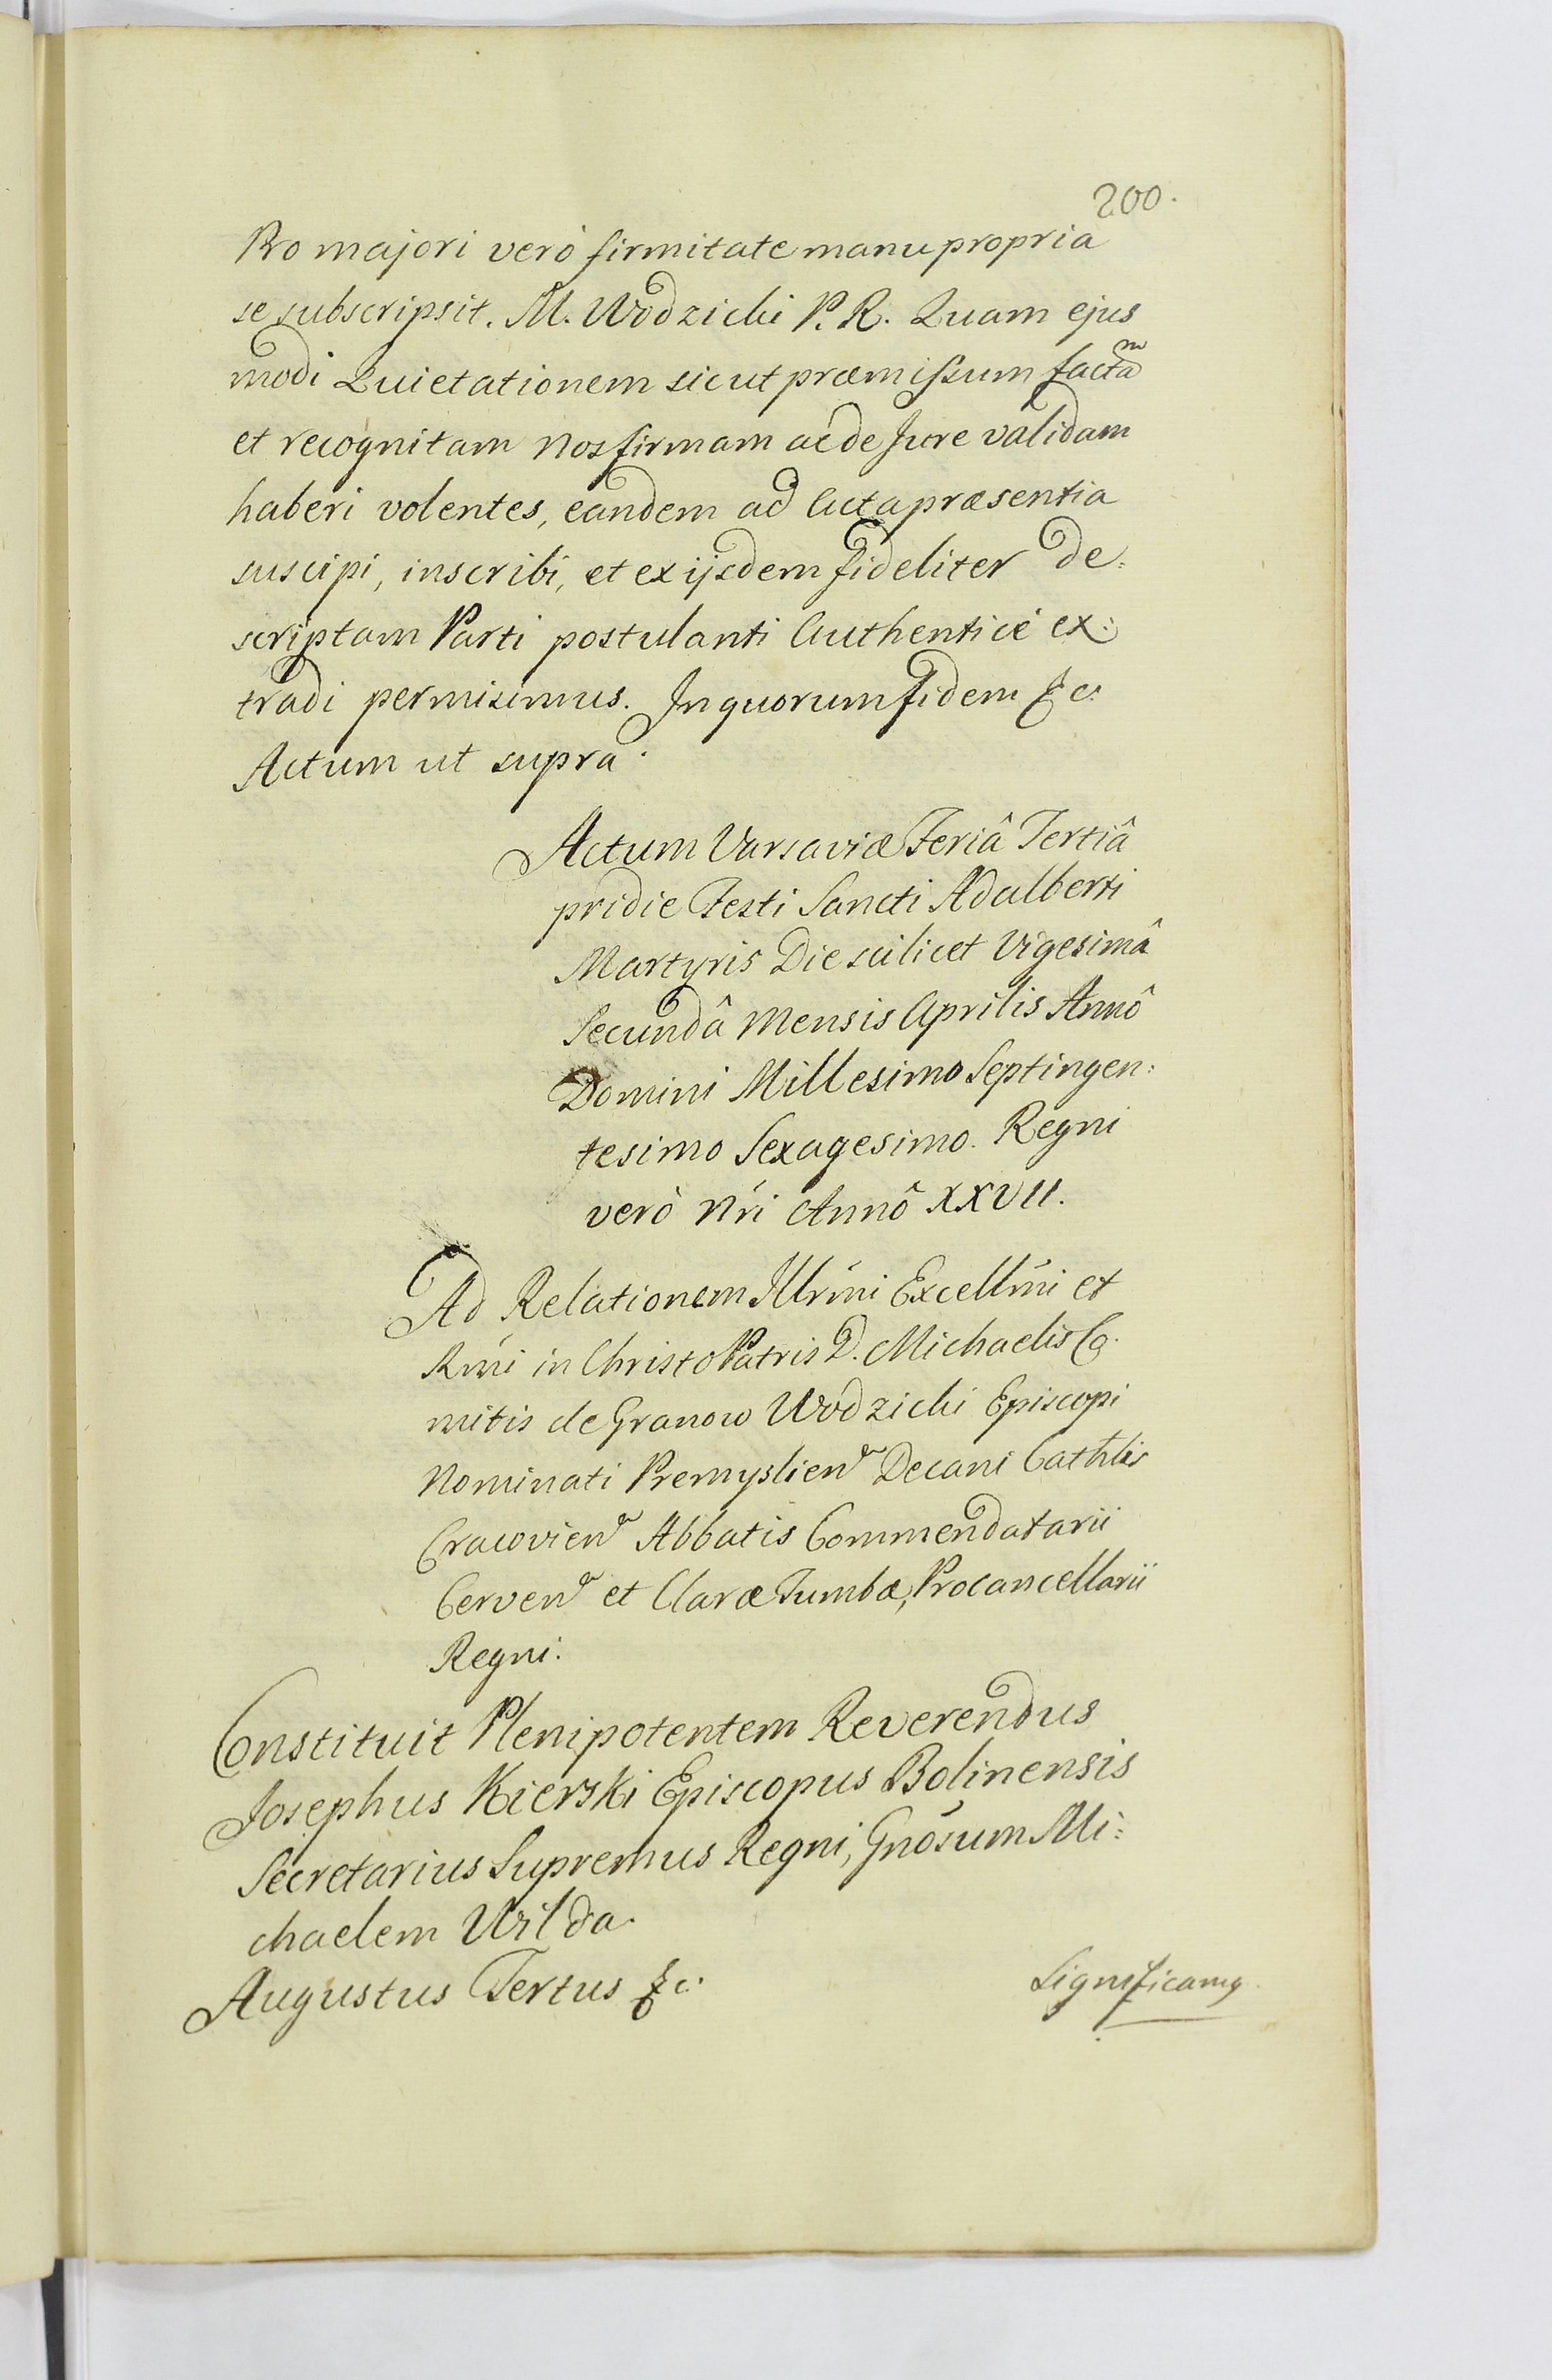 200.
Pro majori verò firmitate manu propria
se subscripsit. M. Wodzicki P. R. Quam ejus
modi Quietationem sicut præmissum factam
et recognitam Nos firmam ac de Jure validam
haberi volentes, eandem ad Acta præsentia
suscipi, inscribi, et ex ijsdem fideliter de:
scriptam Parti postulanti Authenticè ex:
tradi permisimus. In quorum fidem &c.
Actum ut supra.
Actum Varsaviæ Feriâ Tertiâ
pridie Festi Sancti Adalberti
Martyris Die scilicet Vigesimâ
Secundâ Mensis Aprilis Annô
Domini Millesimo Septingen:
tesimo Sexagesimo. Regni
verò Nri Annô XXVII.
Ad Relationem Illrmi Excellmi et
Rmi in Christo Patris D. Michaelis Co.
mitis de Granow Wodzicki Episcopi
Nominati Premyslien Decani Cathlis
Cracovien Abbatis Commendatarii
Cerven et Claræ Tumbæ, Procancellarii
Regni.
Constituit Plenipotentem Reverendus
Josephus Kierski Episcopus Bolinensis
Secretarius Supremus Regni, Gnosum Mi:
chaelem Wilda.
Augustus Tertus &c.
Significamq